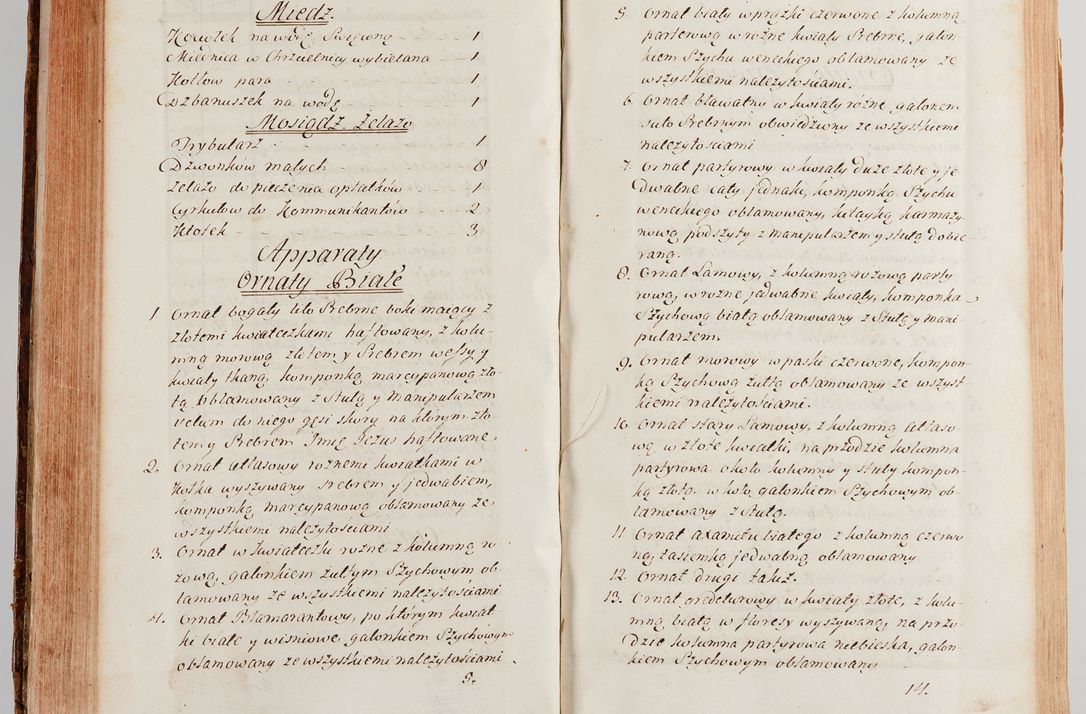 Miedz.
Kociołek na wodę Swięconą - - 1
Miednica w Chrzcielnicy wybielana 1
Kotłow para - - - 1
Dzbanuszek na wodę - 1
Mosiądz. Zelazo
Trybularz - - - 1
Dzwonkow małych - - - 8
Zelazo do pieczenia opłatkow - 1
Cyrkułow do Kommunikantow - 2
Kłotek - - - 3
Apparaty
Ornaty Białe
1. Ornat bogaty lito Srebrne boki maiący z
złotemi kwiateczkami haftowany, z kolu-
mną morową złotem y Srebrem w y
kwiaty tkaną, komponką marcypanową zło-
tą oblamowany z Stułą y Manipularzem
Velum do niego gęsi skory na ktorym zło-
tem y Srebrem Jmię Jezus haftowane
2. Ornat atłasowy roznemi kwiatkami w
Kołka wyszywany srebrem y jedwabiem,
komponką marcypanową oblamowany ze
wszystkiemi nalezytościami
3. Ornat w kwiateczki rozne z kolumną ro-
zową, galonkiem zułtym Szychowym ob-
lamowany ze wszystkiemi nalezytościami
4. Ornat Blamarantowy, po ktorym kwiat-
ki białe y wisniowe, galonkiem Szychowym
oblamowany ze wszystkiemi nalezytościami.
5.
5. Ornat biały w prążki czerwone z kolumną
parterową w rożne kwiaty Srebrne, galon-
kiem Szychu weneckiego oblamowany ze
wszystkiemi należytościami.
6. Ornat bławatny w kwiaty rożne galonem
suto Srebrnym obwiedziony ze wszystkiemi
nalezytościami
7. Ornat partyrowy w kwiaty duże złote y je-
dwabne cały jednaki, komponką Szychu
weneckiego oblamowany, kitayką karmazy-
nową podszyty z manipularzem y stułą dobie-
raną.
8. Ornat Lamowy, z kolumną rozową party-
rową, w rożne jedwabne kwiaty, komponką
Szychową białą oblamowany z Stułą y Mani-
pularzem.
9. Ornat morowy w paski czerwone, kompon-
ką Szychową zułtą oblamowany ze wszyst-
kiemi należytościami.
10. Ornat stary Lamowy, z kolumną atłaso-
wą w złote kwiatki, na przodzie kolumna
partyrowa około kolumny y stuły kompon-
ką złotą w koło galonkiem Szychowym ob-
lamowany z Stułą.
11. Ornat axamitu białego z kolumną czerwo-
ną, tasiemką jedwabną oblamowany
12. Ornat drugi takiż.
13. Ornat grodeturowy w kwiaty złote, z kolu-
mną białą w floresy wyszywaną, na przo-
dzie kolumna partyrowa niebieska, galon-
kiem Szychowym oblamowany
14.